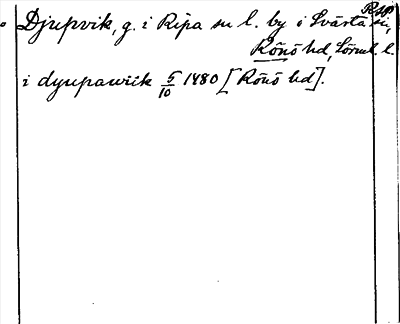 Rsp
Djupvik, g. i Ripa sn l. by i Svärta sn,
Rönö hd, Sörml. l.
i dyupawiik 5/10 1480 [Rönö hd].